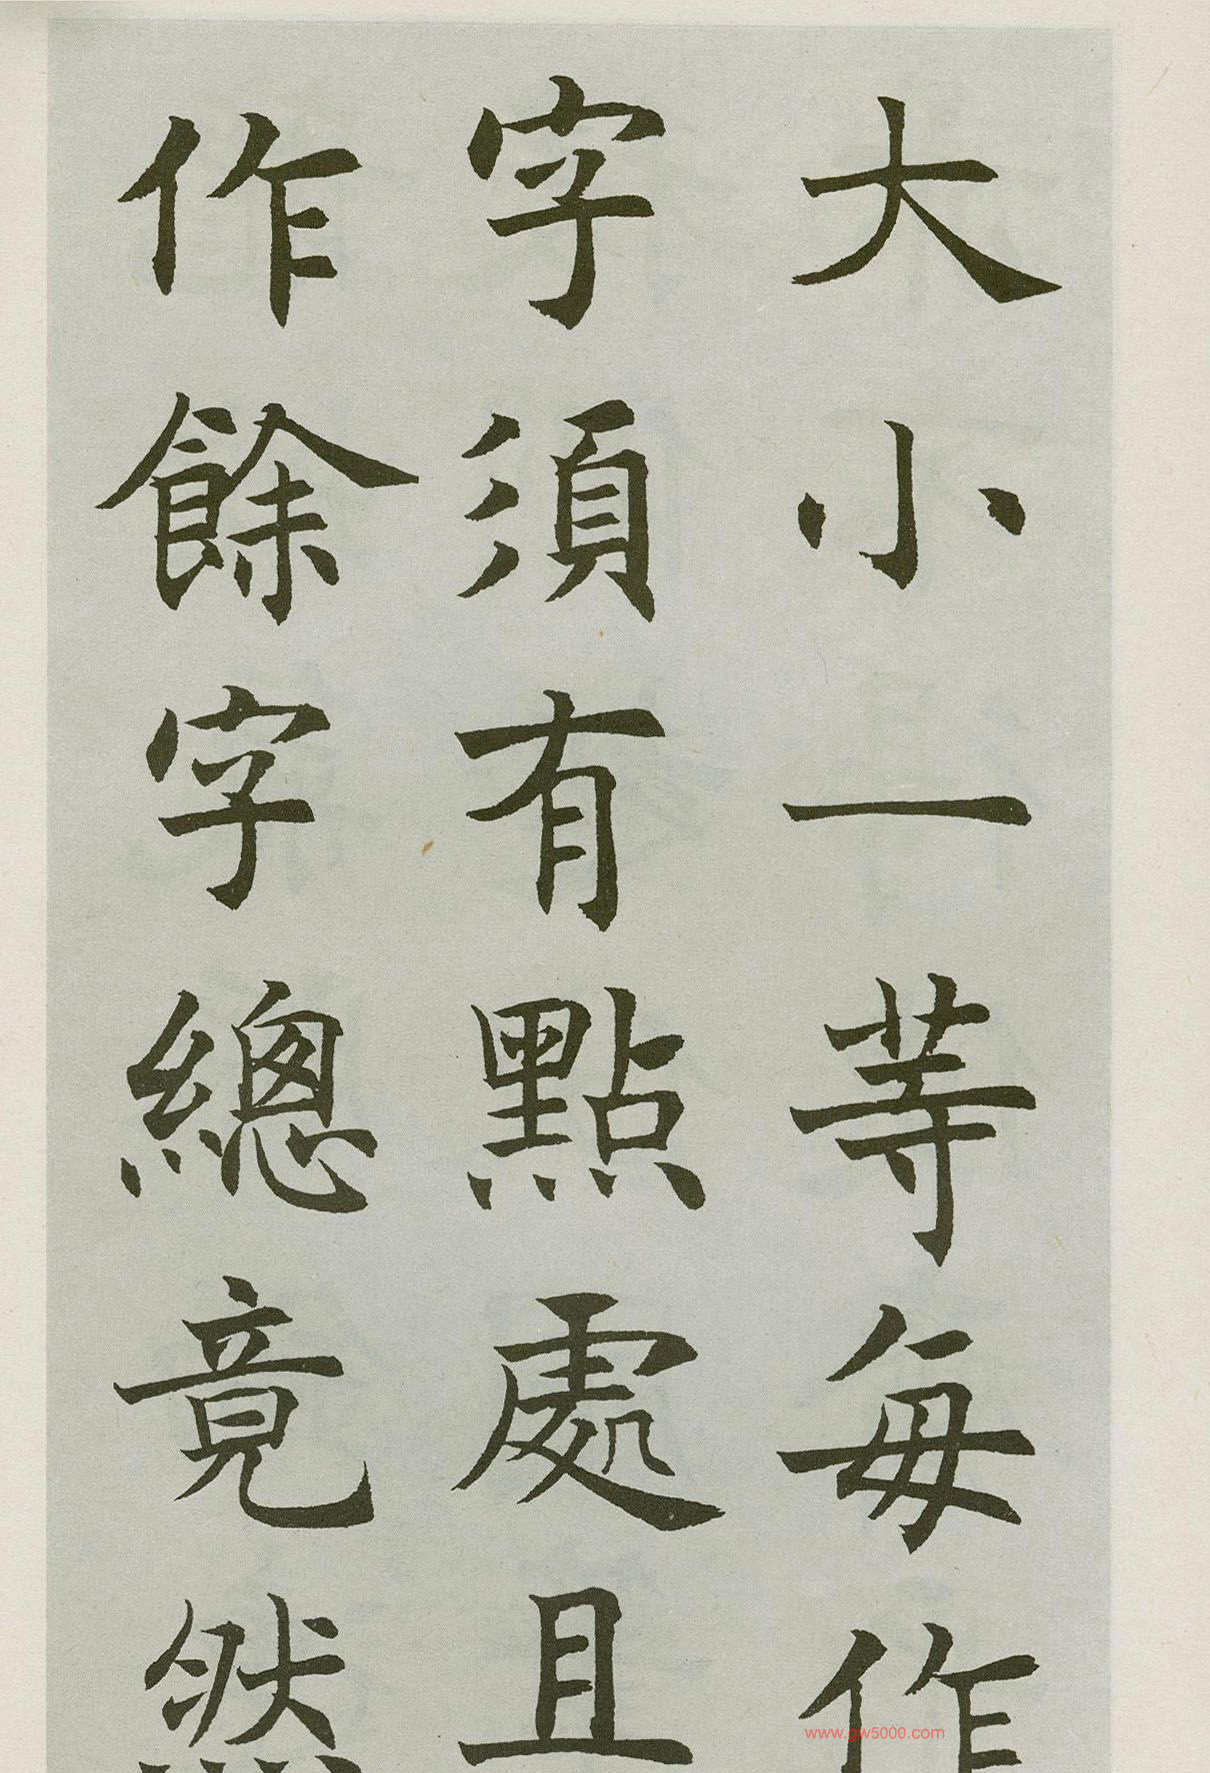 大小一等每作
字須有點處且
作餘字總竟然
www.gw5000.com